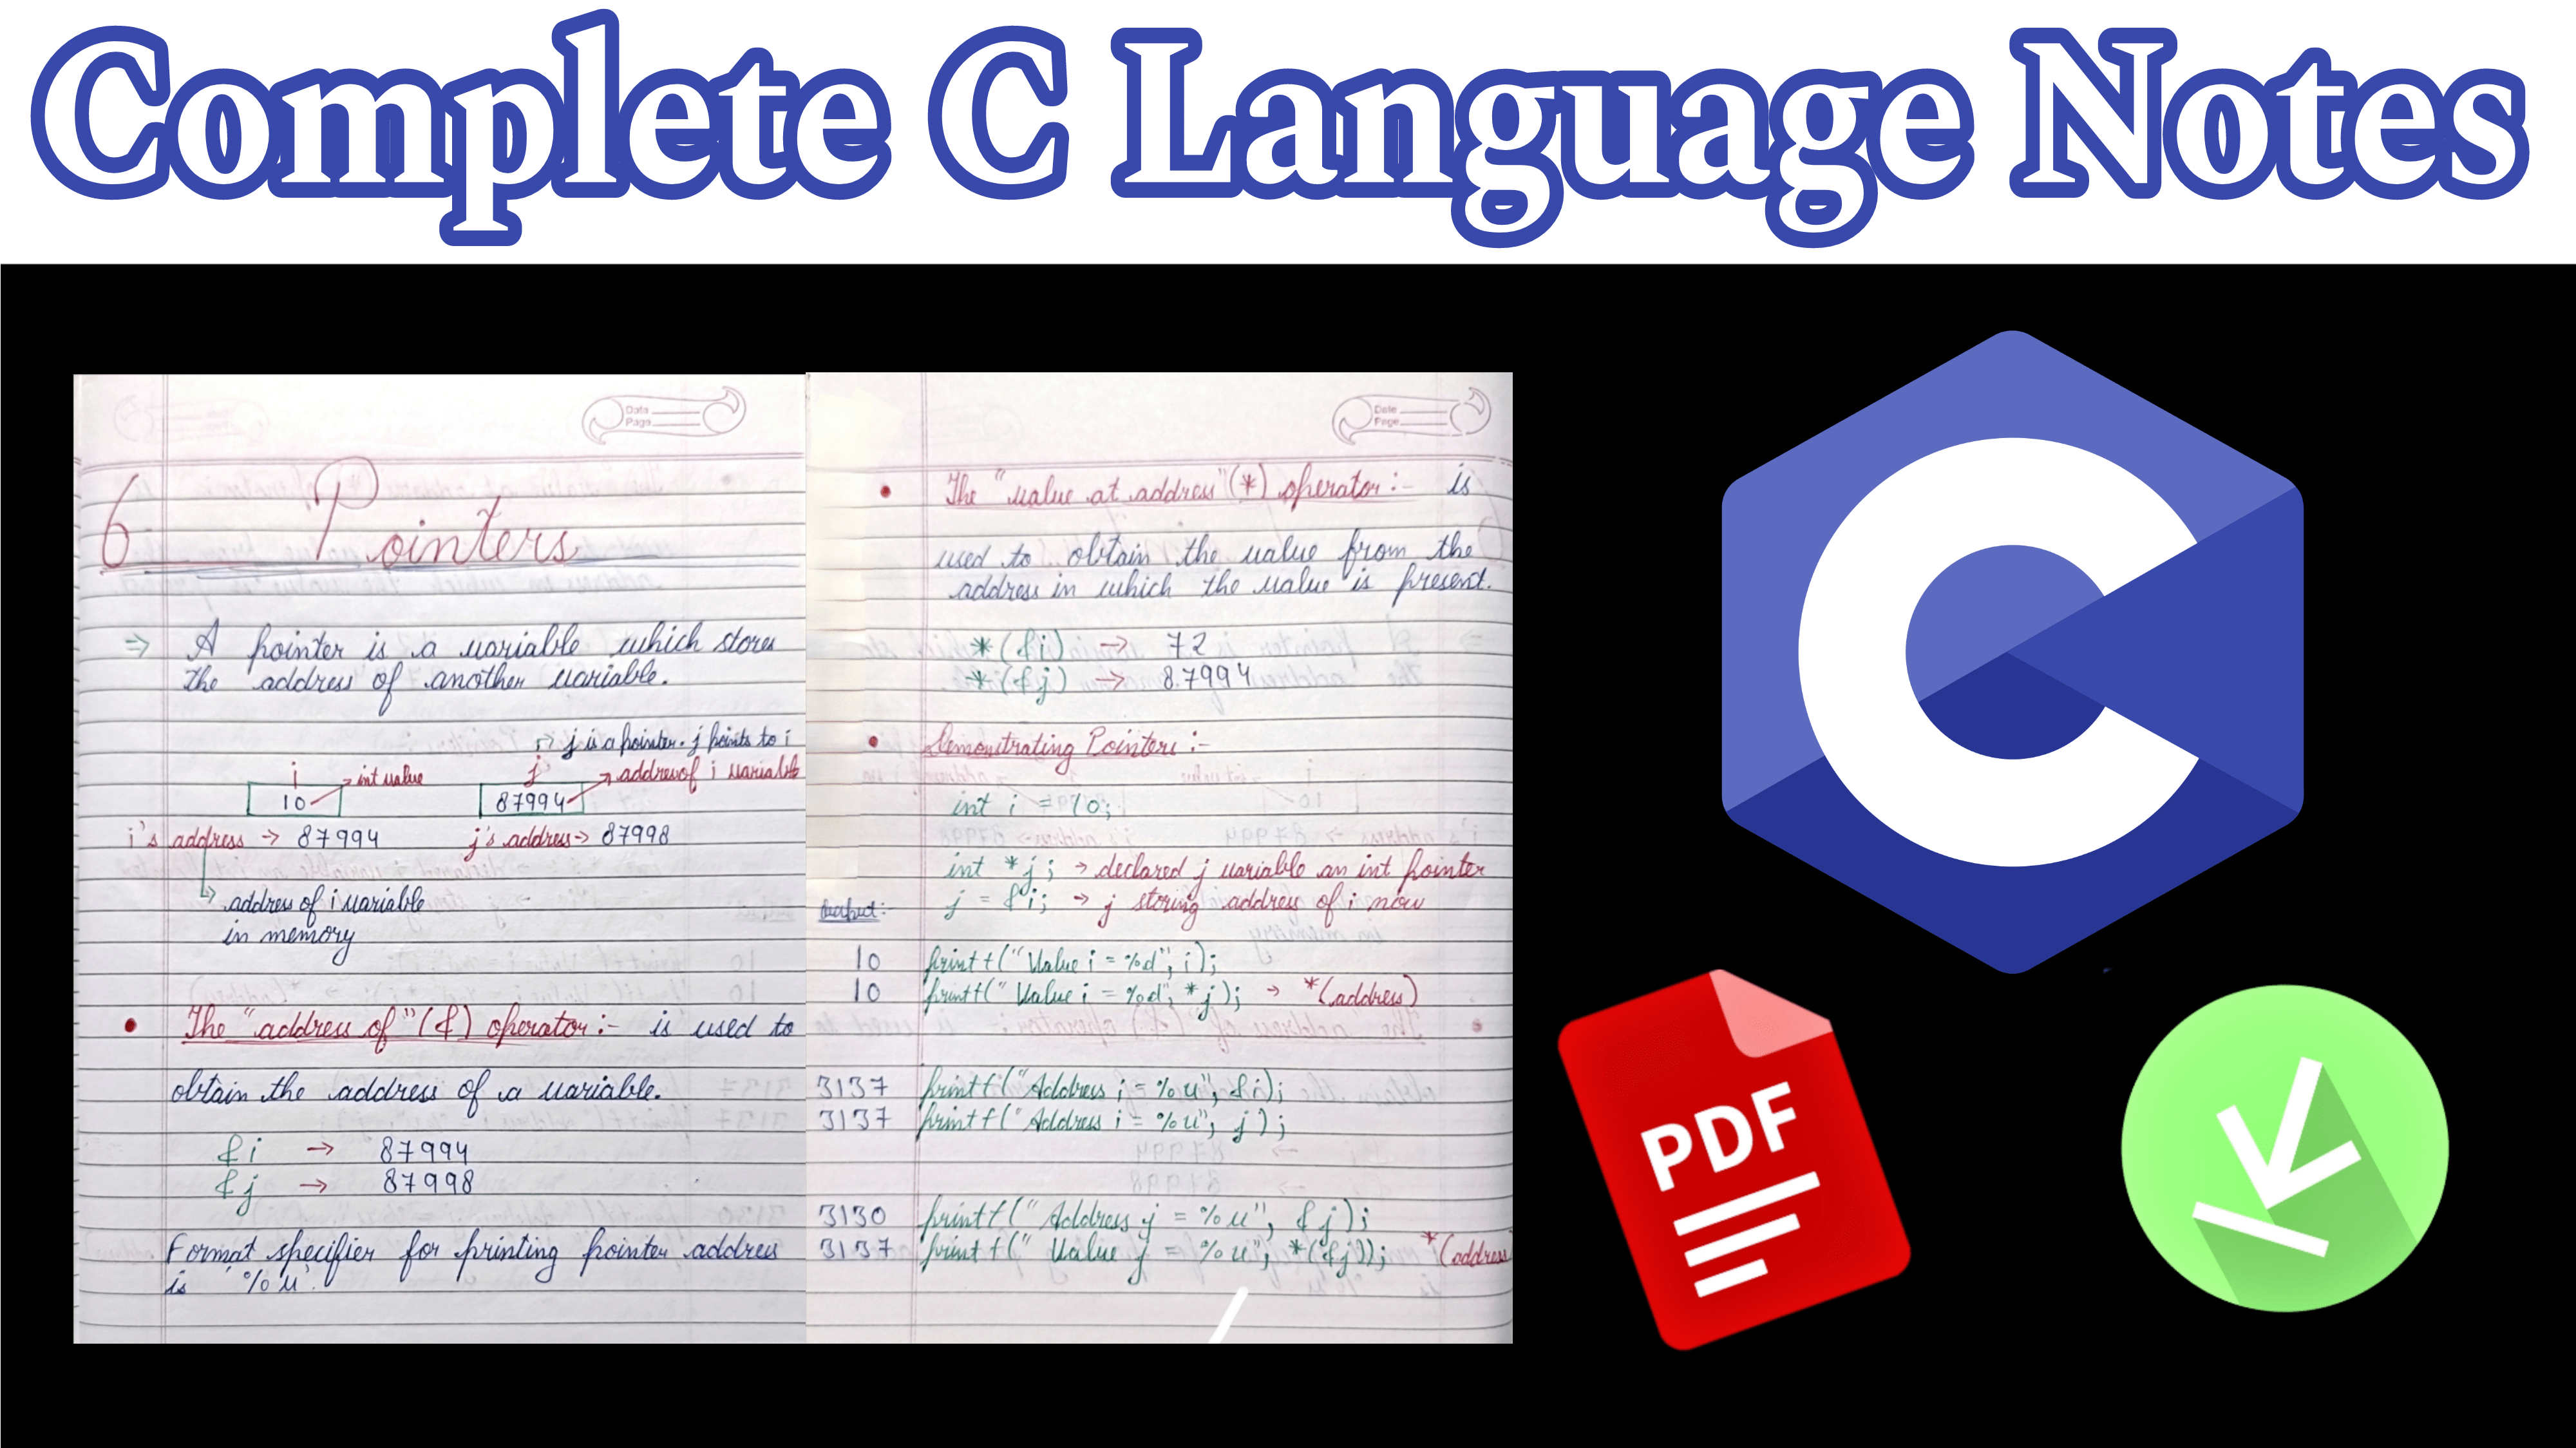 Complete C Language Notes
Date
Page
6 Pointers
⇒ A pointer is a variable which stores
the address of another variable.
→ j is a pointer. j points to i
i → int value
j → address of i variable
10
87994
i's address → 87994
j's address → 87998
↳ address of i variable
in memory
• The "address of" (&) operator :- is used to
obtain the address of a variable.
&i → 87994
&j → 87998
Format specifier for printing pointer address
is '%u'.
Date
Page
• The "value at address" (*) operator :- is
used to obtain the value from the
address in which the value is present.
*(&i) → 72
*(&j) → 87994
• Demonstrating Pointers :-
int i = 10;
int *j; → declared j variable an int pointer
j = &i; → j storing address of i now
Output :-
10 printf("Value i = %d", i);
10 printf("Value i = %d", *j); → *(address)
3137 printf("Address i = %u", &i);
3137 printf("Address i = %u", j);
3130 printf("Address j = %u", &j);
3137 printf("Value j = %u", *(&j)); *(address
C
PDF